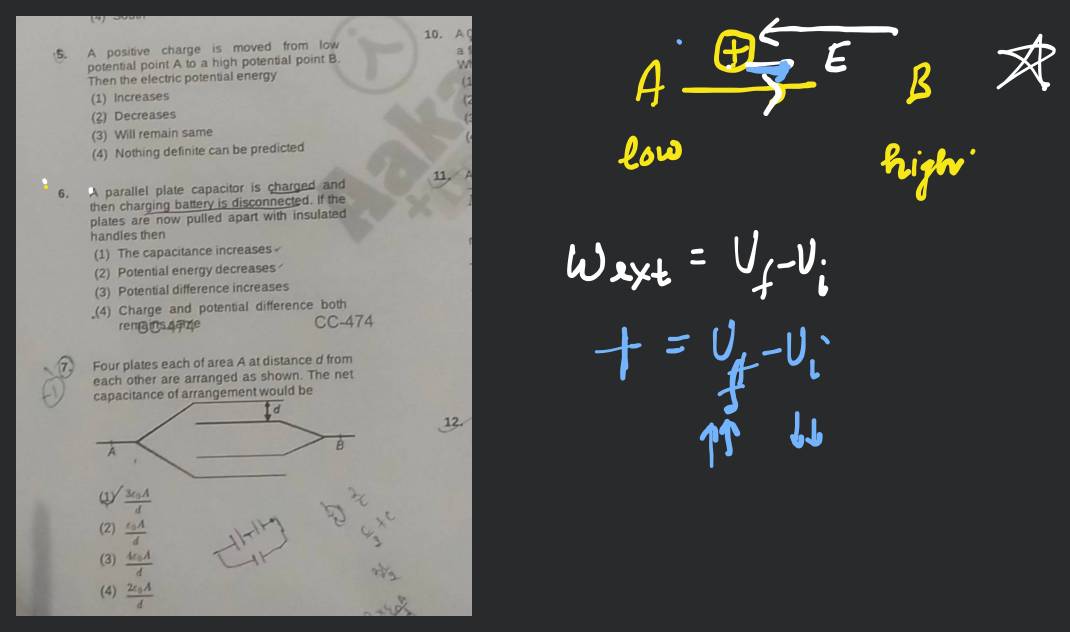 (4) South
5. A positive charge is moved from low
potential point A to a high potential point B.
Then the electric potential energy
(1) Increases
(2) Decreases
(3) Will remain same
(4) Nothing definite can be predicted
6. A parallel plate capacitor is charged and
then charging battery is disconnected. If the
plates are now pulled apart with insulated
handles then
(1) The capacitance increases
(2) Potential energy decreases
(3) Potential difference increases
(4) Charge and potential difference both
remains same
CC-474 CC-474
7. Four plates each of area A at distance d from
each other are arranged as shown. The net
capacitance of arrangement would be
d
A B
(1) 3ε₀A/d
(2) ε₀A/d
(3) 4ε₀A/d
(4) 2ε₀A/d
10. A
11. A
12.
Aaka
+ E
A B
low high
Wext = Uf - Ui
+ = Uf - Ui
↑↑ ↓↓